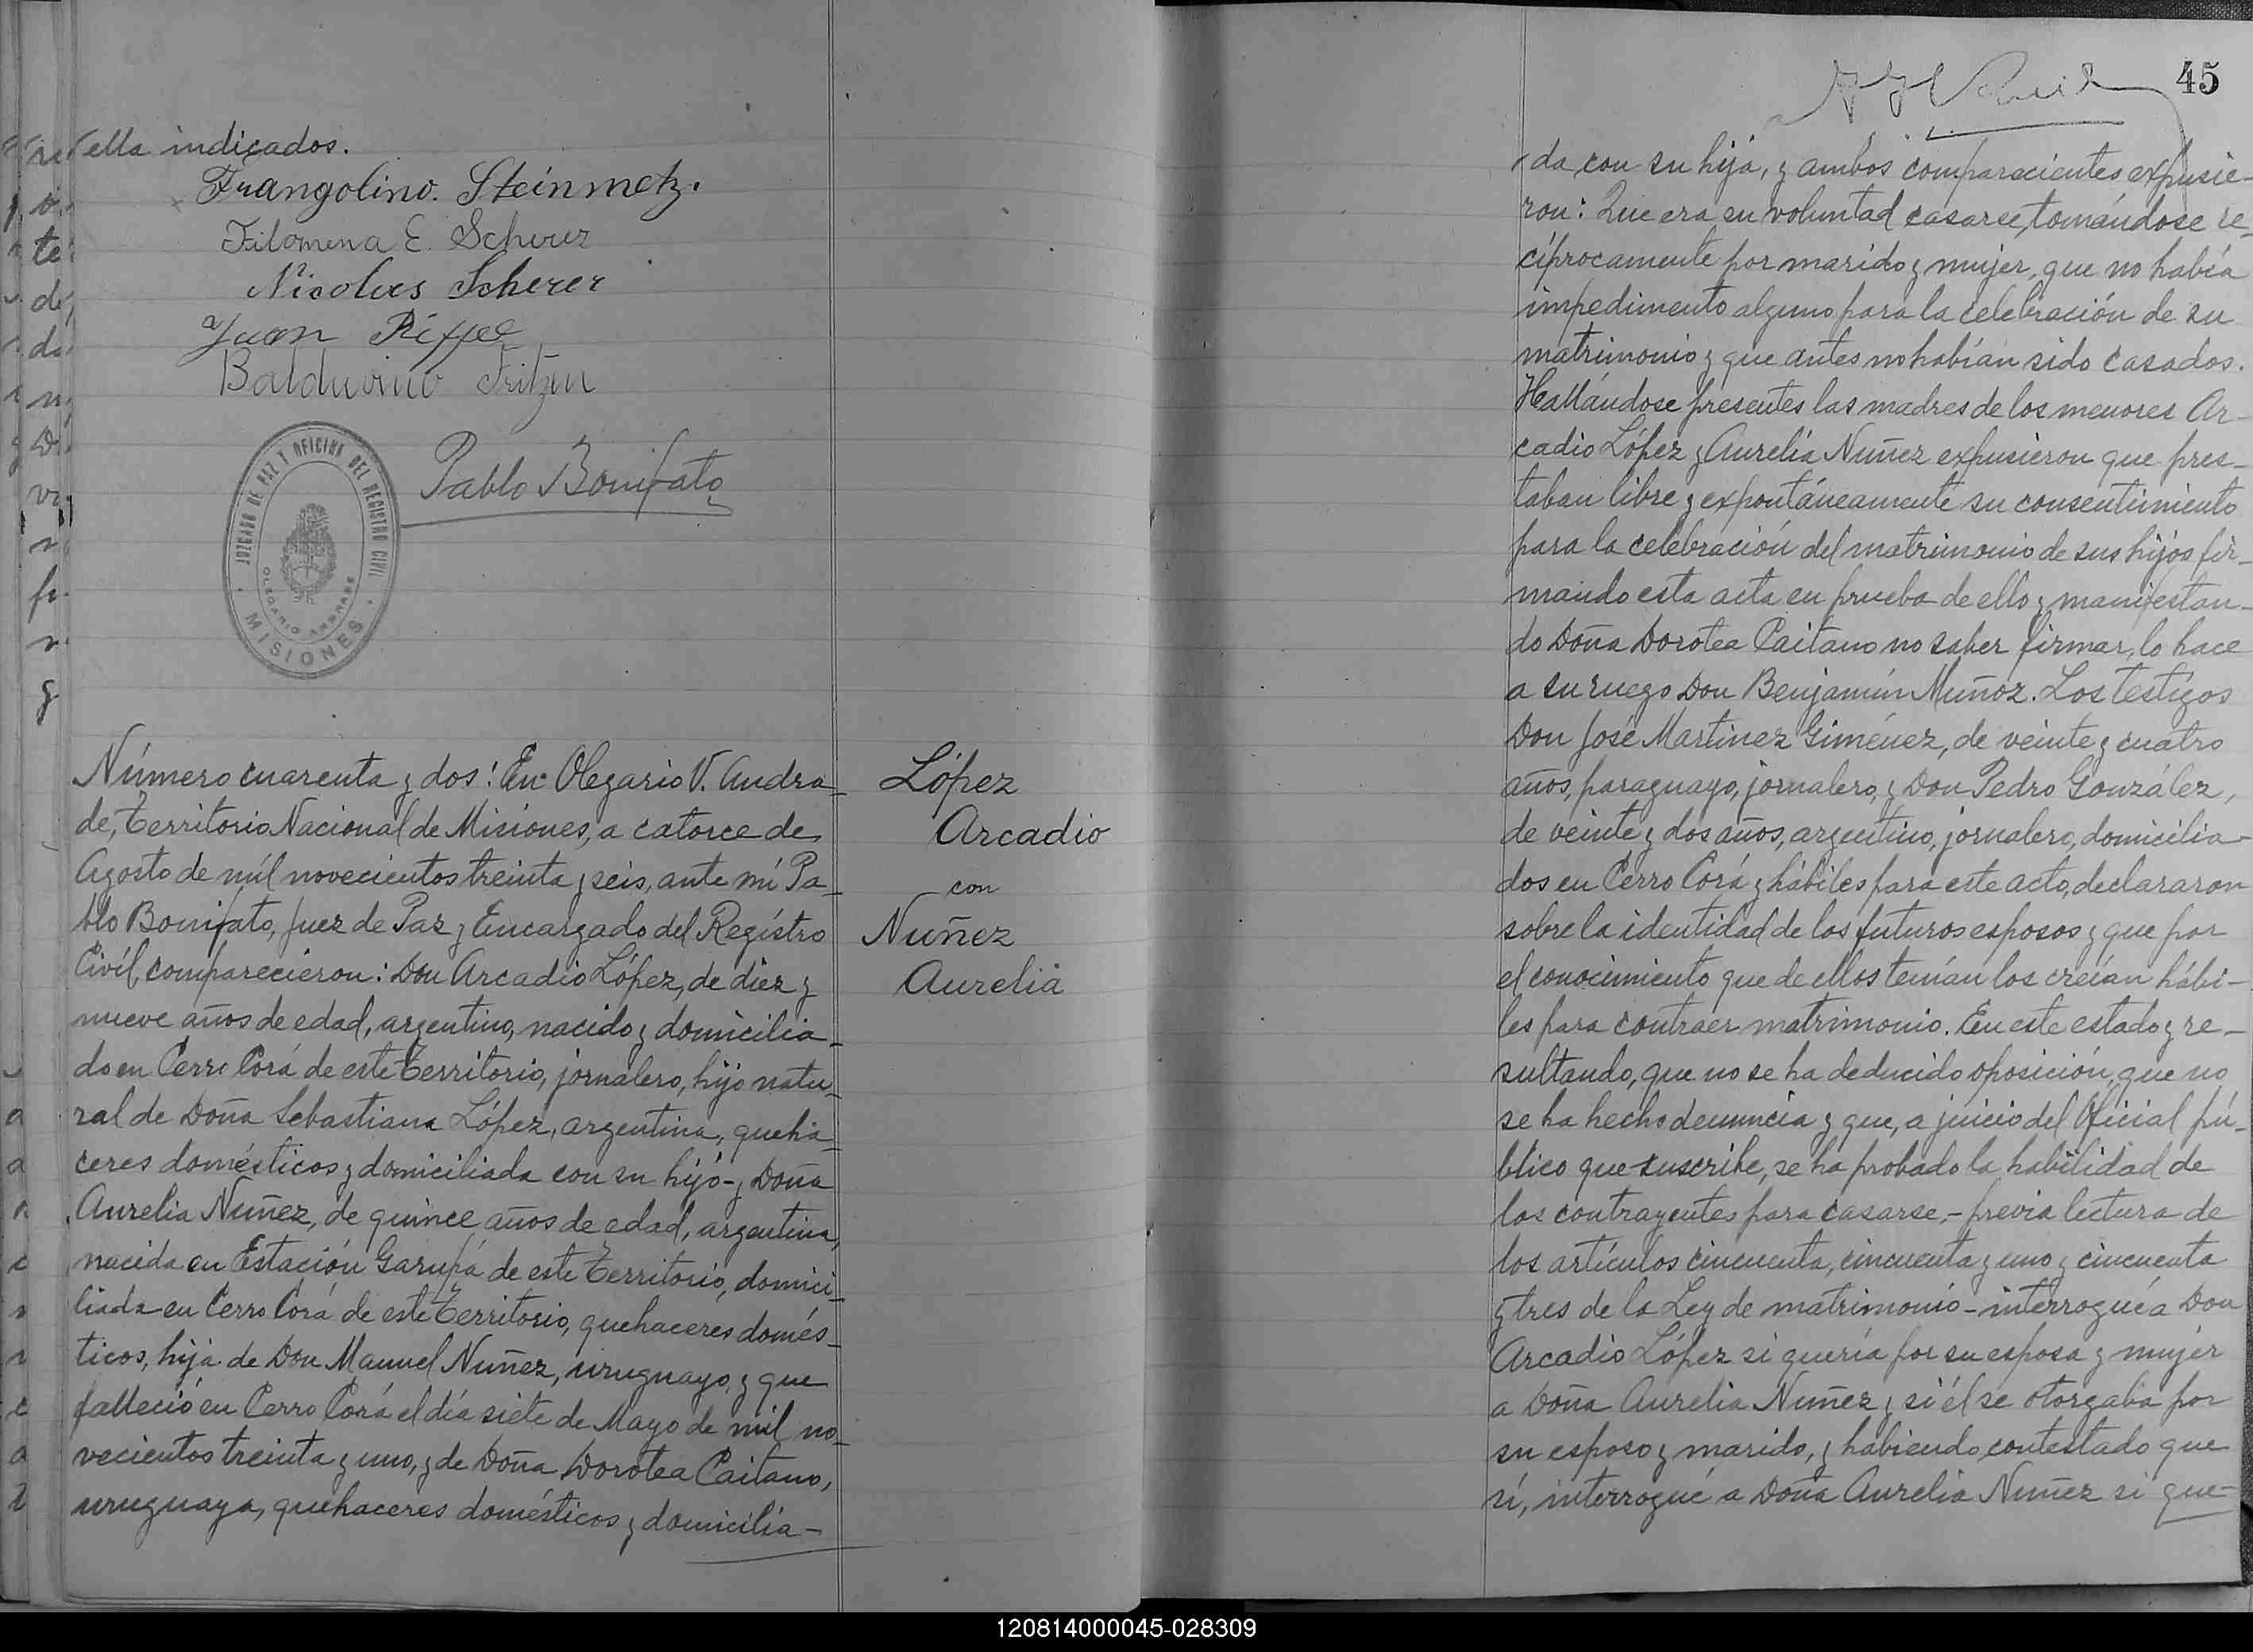 ella indicados.
Frangolino. Steinmetz.
Filomena E. Scherer
Nicolves Scherer
Juan
Balduvino Fritzen
JUZGADO DE PAZ Y OFICINA DEL REGISTRO CIVIL
OLEGARIO ANDRADE
MISIONES
Pablo Bonifato
Número cuarenta y dos: En Olegario V. Andra-
de, Territorio Nacional de Misiones, a catorce de
Agosto de mil novecientos treinta y seis, ante mí Pa-
blo Bonifato, Juez de Paz y Encargado del Registro
Civíl, comparecieron: Don Arcadio López, de diez y
nueve años de edad, argentino, nacido y domicilia-
do en Cerro Corá de este Territorio, jornalero, hijo natu-
ral de Doña Sebastiana López, argentina, queha-
ceres domésticos y domiciliada con su hijo - y Doña
Aurelia Nuñez, de quince años de edad, argentina,
nacida en Estación Garupá de este Territorio, domici-
liada en Cerro Corá de este Territorio, quehaceres domés-
ticos, hija de Don Manuel Nuñez, uruguayo, y que
falleció en Cerro Corá el día siete de Mayo de mil no-
vecientos treinta y uno, y de Doña Dorotea Caitano,
uruguaya, quehaceres domésticos y domicilia-
López
Arcadio
con
Nuñez
Aurelia
45
da con su hija, y ambos comparecientes expusie-
ron: Que era su voluntad casarse, tomándose re-
cíprocamente por marido y mujer, que no había
impedimento alguno para la celebración de su
matrimonio y que antes no habían sido casados.
Hallándose presentes las madres de los menores Ar-
cadio López y Aurelia Nuñez expusieron que pres-
taban libre y expontáneamente su consentimiento
para la celebración del matrimonio de sus hijos fir-
mando esta acta en prueba de ello y manifestan-
do Doña Dorotea Caitano no saber firmar, lo hace
a su ruego Don Benjamín Muñoz. Los testigos
Don José Martinez Giménez, de veinte y cuatro
años, paraguayo, jornalero, y Don Pedro González,
de veinte y dos años, argentino, jornalero, domicilia-
dos en Cerro Corá y hábiles para este acto, declararon
sobre la identidad de los futuros esposos y que por
el conocimiento que de ellos tenían los creían hábi-
les para contraer matrimonio. En este estado y re-
sultando, que no se ha deducido oposición, que no
se ha hecho denuncia y que, a juicio del Oficial pú-
blico que suscribe, se ha probado la habilidad de
los contrayentes para casarse, - previa lectura de
los artículos cincuenta, cincuenta y uno y cincuenta
y tres de la Ley de matrimonio - interrogué a Don
Arcadio López si quería por su esposa y mujer
a Doña Aurelia Nuñez y si él se otorgaba por
su esposo y marido, y habiendo contestado que
sí, interrogué a Doña Aurelia Nuñez si que-
120814000045-028309